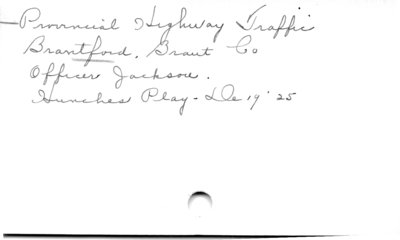 Provincial Highway Traffic
Brantford, Brant Co
Officer Jackson.
Hunches Play - De 19 '25